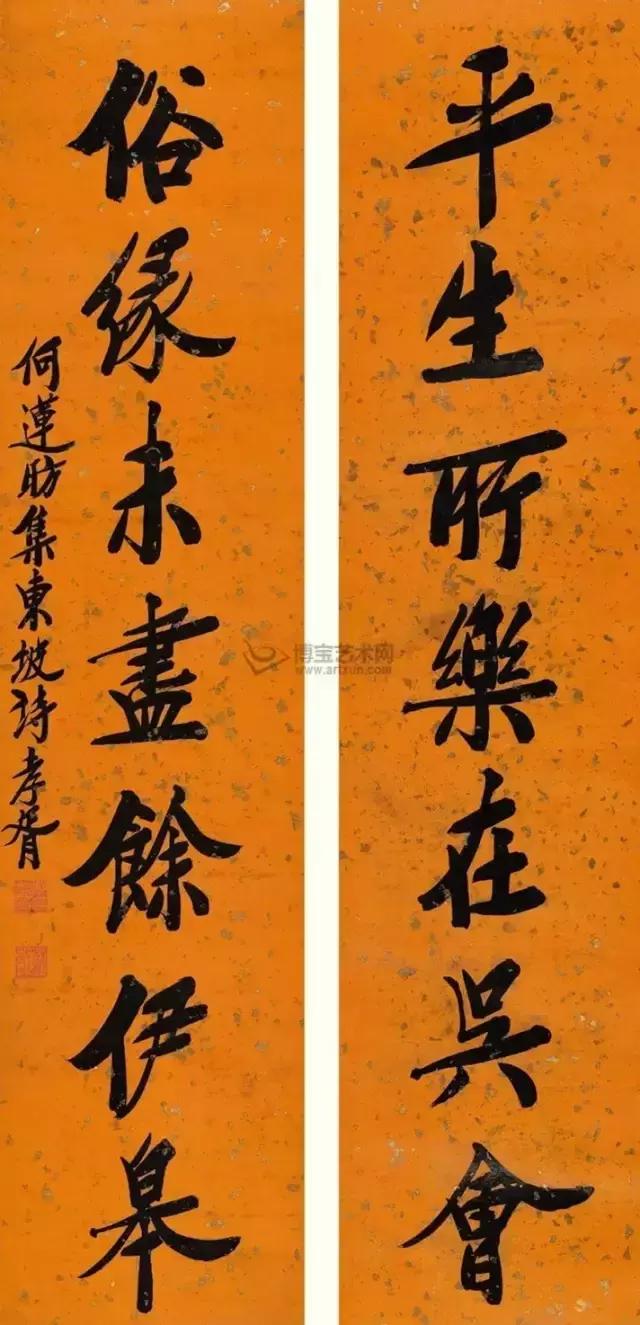 平生所樂在吳會
俗緣未盡餘伊皋
何蓮昉集東坡詩孝胥
博宝艺术网
www.artxun.com